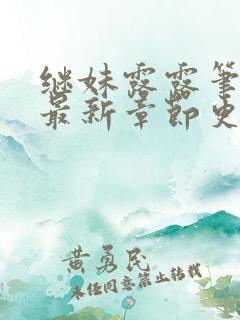 继妹露露笔
最新章节史
黄勇民
未经同意禁止转载